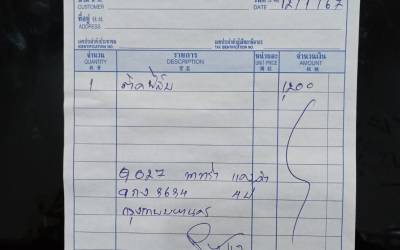 CUSTOMER
DATE 12/1/67
ที่อยู่
ADDRESS
เลขประจำตัวประชาชน
IDENTIFICATION NO.
เลขประจำตัวผู้เสียภาษีอากร
TAX IDENTIFICATION NO.
จำนวน รายการ หน่วยละ จำนวนเงิน
QUANTITY DESCRIPTION UNIT PRICE AMOUNT
1 ติดฟิล์ม 1200
ทาทร่า แดงดำ
9กง 8684
กรุงเทพมหานคร